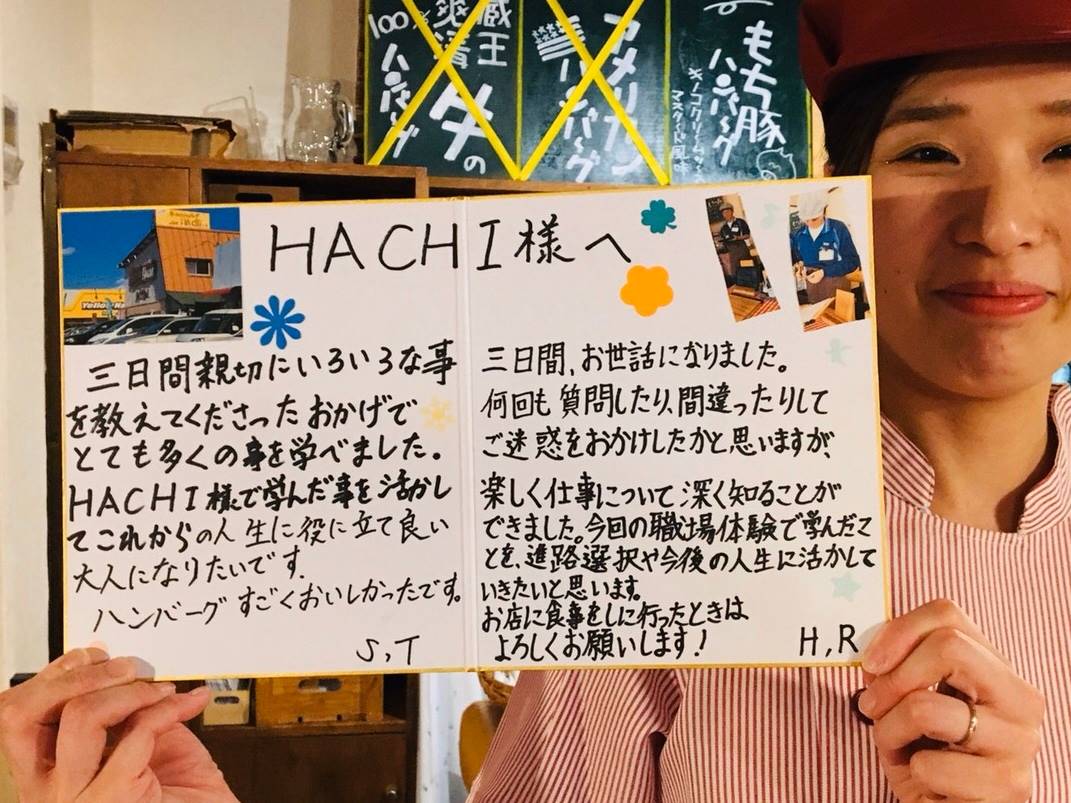 100%
蔵王
爽清
牛の
ハンバーグ
アメリカン
ハンバーグ
もち豚
ハンバーグ
キノコクリームソース
マスタード風味
HACHI様へ
Yellow
三日間親切にいろいろな事
を教えてくださったおかげで
とても多くの事を学べました。
HACHI様で学んだ事を活かし
てこれからの人生に役に立て良い
大人になりたいです.
ハンバーグすごくおいしかったです。
S,T
三日間、お世話になりました。
何回も質問したり、間違ったりして
ご迷惑をおかけしたかと思いますが、
楽しく仕事について深く知ることが
できました。今回の職場体験で学んだこ
とを、進路選択や今後の人生に活かして
いきたいと思います。
お店に食事をしに行ったときは
よろしくお願いします!
H,R